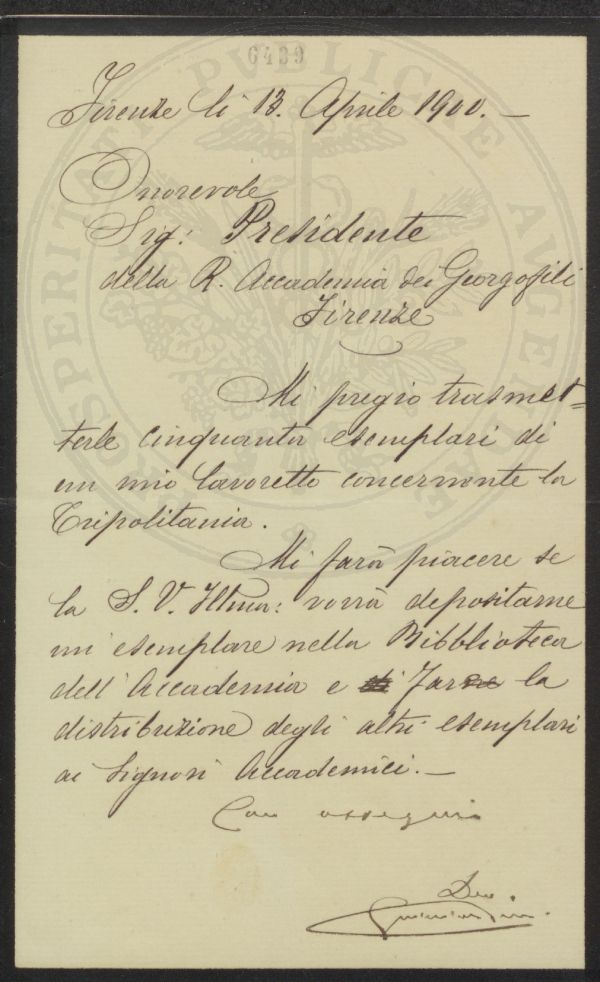 6439
PROSPERITATI PUBLICAE AUGENDAE
Firenze li 13. Aprile 1900. —
Onorevole
Sig: Presidente
della R. Accademia dei Georgofili
Firenze
Mi pregio trasmet=
terle cinquanta esemplari di
un mio lavoretto concernente la
Tripolitania.
Mi farà piacere se
la S. V. Illma: vorrà depositarne
un esemplare nella Bibblioteca
dell'Accademia e far la
distribuzione degli altri esemplari
ai Signori Accademici. —
Con ossequio
Dev.